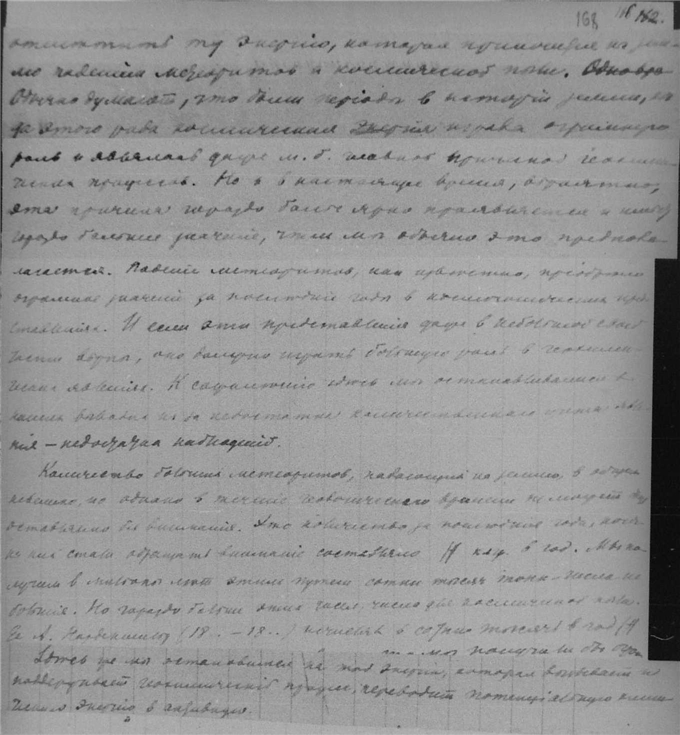 168 162.
отметить ту энергию, которая приносится на землю
падением метеоритов и космической пыли.
Обычно думают, что были периоды в истории земли,
этого рода космическая энергия играла огромную
роль и являлась даже м. б. главной причиной геохими-
ческих процессов. Но и в настоящее время, вероятно,
эта причина гораздо более ярко проявляется и имеет
гораздо большее значение, чем мы обычно это предпола-
гается. Падение метеоритов, как известно, приобрело
огромное значение за последние годы в космогонических пред-
ставлениях. И если эти представления даже в небольшой своей
части верны, оно должно играть большую роль в геохими-
ческих явлениях. К сожалению здесь мы останавливаемся в
наших выводах из-за недостатка количественного учета явле-
ния – недостатка наблюдений.
Количество больших метеоритов, падающих на землю, в общем
невелико, но однако в течение геологического времени не может быть
оставлено без внимания. Это количество за последние годы, когда
на них стали обращать внимание составляло в год. Мы по-
лучим в миллионы лет этим путем сотни тысяч тонн – числа не
большие. Но гораздо больше этих чисел, числа для космической пыли.
А. Норденшельд (18..–18..) исчислял в сотню тысяч в год
мы получили бы
Здесь же мы остановимся на той энергии, которая вызывает и
поддерживает геохимический процесс, переводит потенциальную хими-
ческую энергию в активную.